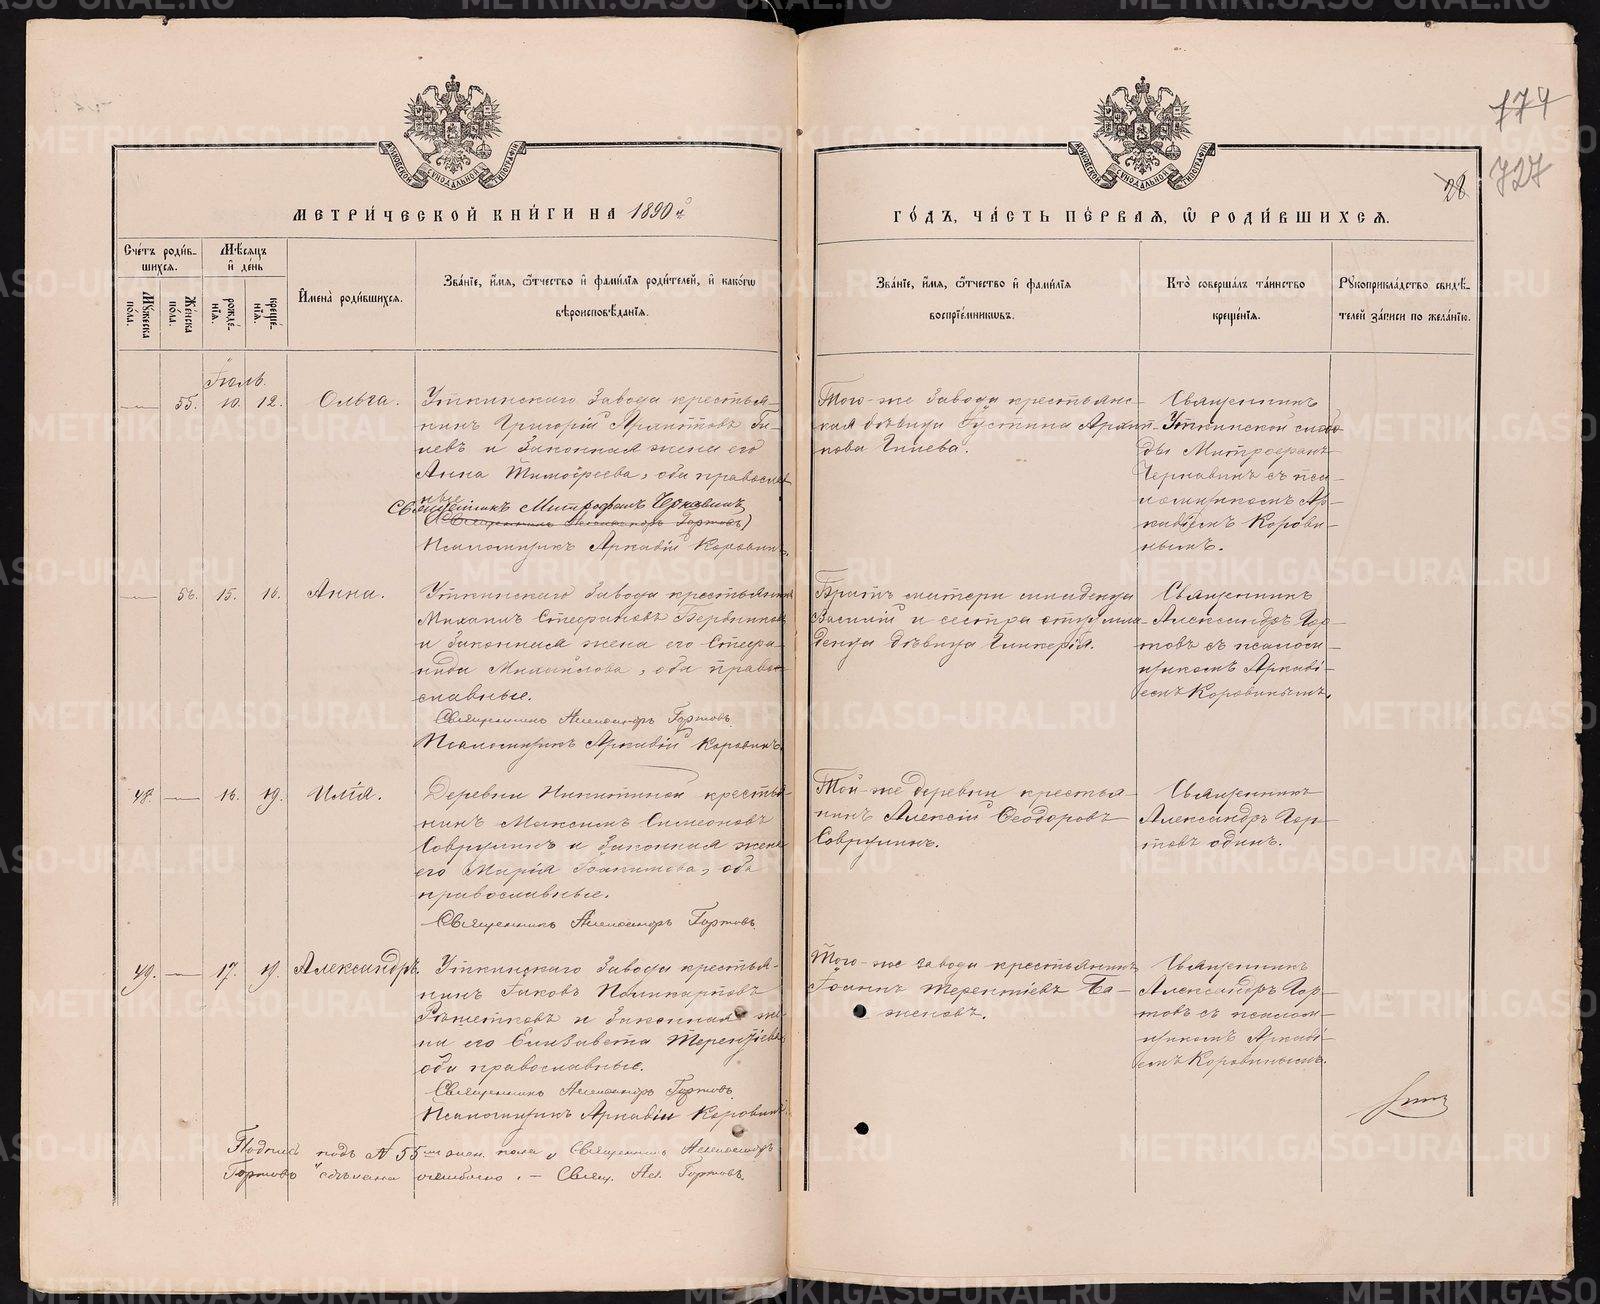 174
727
28
МЕТРИ́ЧЕСКОЙ КНИ́ГИ НА 1890 й
ГО́ДЪ, ЧА́СТЬ ПЕ́РВАЯ, Ѡ РОДИ́ВШИХСЯ.
Сче́тъ роди́в-
шихся.
Му́жеска по́ла.
Же́нска по́ла.
Мѣ́сяцъ и де́нь
рожде́-
нїя.
креще́-
нїя.
Имена̀ роди́вшихся.
Зва́нїе, и́мя, ѻ́тчество и фами́лїя роди́телей, и како́гѡ
вѣроисповѣ́данїя.
Зва́нїе, и́мя, ѻ́тчество и фами́лїя
воспрїе́мникѡвъ.
Кто̀ соверша́лъ та́инство
креще́нїя.
Рꙋкоприкла́дство свидѣ́-
телей за́писи по жела́нїю.
Іюль.
55. 10. 12. Ольга.
Уткинскаго завода крестья-
нинъ Григорій Архиповъ Ги-
левъ и законная жена его
Анна Тимофеева, оба православ-
ные
Священникъ Митрофанъ Чернавинъ
(Священникъ Александръ Гортовъ)
Псаломщикъ Аркадій Коровинъ.
Того-же завода крестьянс-
кая дѣвица Іустина Архип-
пова Гилева.
Священникъ
Уткинской слобо-
ды Митрофанъ
Чернавинъ съ пса-
ломщикомъ Ар-
кадіемъ Корови-
нымъ.
56. 15. 16. Анна.
Уткинскаго завода крестьянинъ
Михаилъ Стефановъ
и законная жена его Стефа-
нида Михайлова, оба право-
славные.
Священникъ Александръ Гортовъ
Псаломщикъ Аркадій Коровинъ.
Братъ матери младенца
Василій и сестра отцу мла-
денца дѣвица Гликерія.
Священникъ
Александръ Гор-
товъ съ псалом-
щикомъ Аркаді-
емъ Коровинымъ.
48. 16. 19. Илія.
Деревни Никитиной крестья-
нинъ Максимъ Симеоновъ
Соврулинъ и законная жена
его Марія Іоакимова, оба
православные.
Священникъ Александръ Гортовъ
Той-же деревни крестья-
нинъ Алексій Ѳеодоровъ
Соврулинъ.
Священникъ
Александръ Гор-
товъ одинъ.
49. 17. 19. Александръ.
Уткинскаго завода крестья-
нинъ Іаковъ Поликарповъ
Рѣшетковъ и законная же-
на его Елизавета Терентіева
оба православные.
Священникъ Александръ Гортовъ
Псаломщикъ Аркадій Коровинъ
Того-же завода крестьянинъ
Іоаннъ Терентіевъ Ба-
женовъ.
Священникъ
Александръ Гор-
товъ съ псалом-
щикомъ Аркаді-
емъ Коровинымъ.
Подпись подъ № 55 жен. пола „Священникъ Александръ
Гортовъ" сдѣлана ошибочно. — Свящ. Ал. Гортовъ.